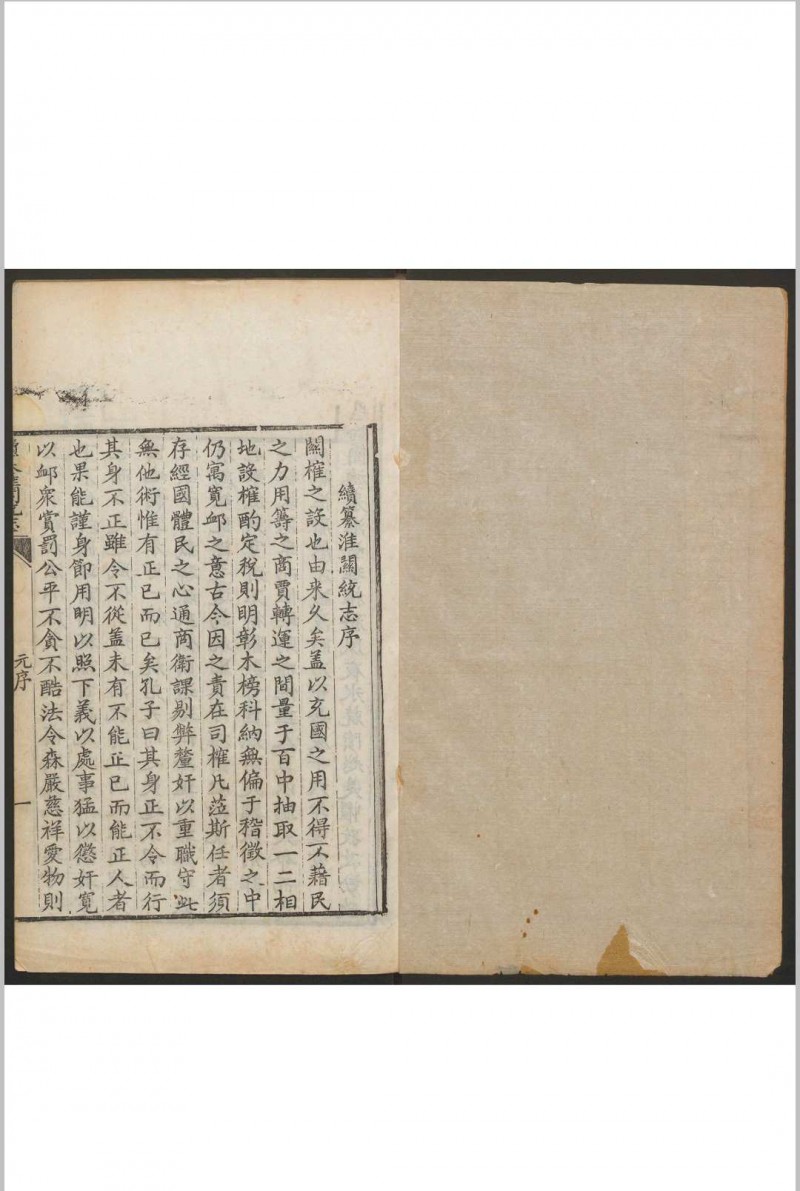 續纂淮關統志序
關榷之設也由来久矣盖以充國之用不得不藉民
之力用籌之商賈轉運之間量于百中抽取一二相
地設榷酌定税則明彰木榜科納無偏于稽徵之中
仍寓寛邮之意古今因之責在司榷凡蒞斯任者須
存經國體民之心通商衛課剔弊釐奸以重職守此
無他術惟有正已而已矣孔子曰其身正不令而行
其身不正雖令不從盖未有不能正已而能正人者
也果能謹身節用明以照下義以處事猛以懲奸寛
以邮衆賞罰公平不貪不酷法令森嚴慈祥愛物則
元序
一